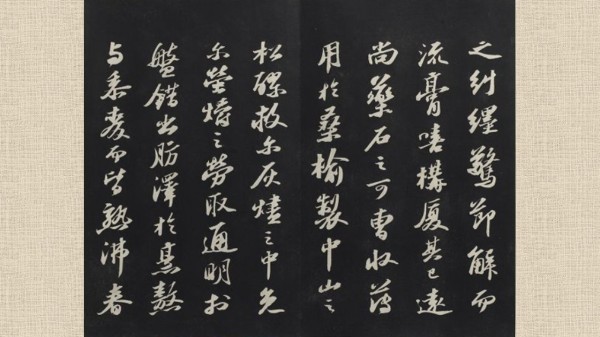 之糾纏驚節解而
流膏嘻構厦其已遠
尚藥石之可曹收薄
用於桑榆製中山之
松醪救尔灰燼之中免
尔螢爝之勞取通明於
盤錯出肪澤於烹熬
与黍麦而皆熟沸舂